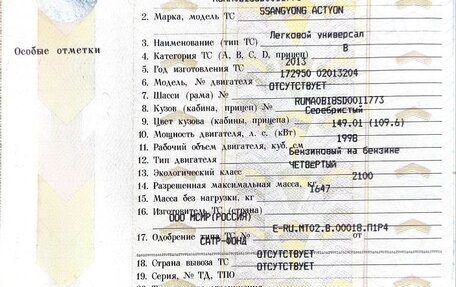 2. Марка, модель ТС SSANGYONG ACTYON
Особые отметки
3. Наименование (тип ТС) Легковой универсал
4. Категория ТС (A, B, C, D, прицеп) B
5. Год изготовления ТС 2013
6. Модель, № двигателя 172950 02013204
7. Шасси (рама) № ОТСУТСТВУЕТ
8. Кузов (кабина, прицеп) № RUMA0B18SD0011773
9. Цвет кузова (кабины, прицепа) Серебристый
10. Мощность двигателя, л. с. (кВт) 149.01 (109.6)
11. Рабочий объем двигателя, куб. см 1998
12. Тип двигателя Бензиновый на бензине
13. Экологический класс ЧЕТВЕРТЫЙ
14. Разрешенная максимальная масса, кг 2100
15. Масса без нагрузки, кг 1647
16. Изготовитель ТС (страна)
17. Одобрение типа ТС № E-RU.MT02.B.00018.П1Р4 от
САТР-ФОНД
18. Страна вывоза ТС ОТСУТСТВУЕТ
19. Серия, № ТД, ТПО ОТСУТСТВУЕТ